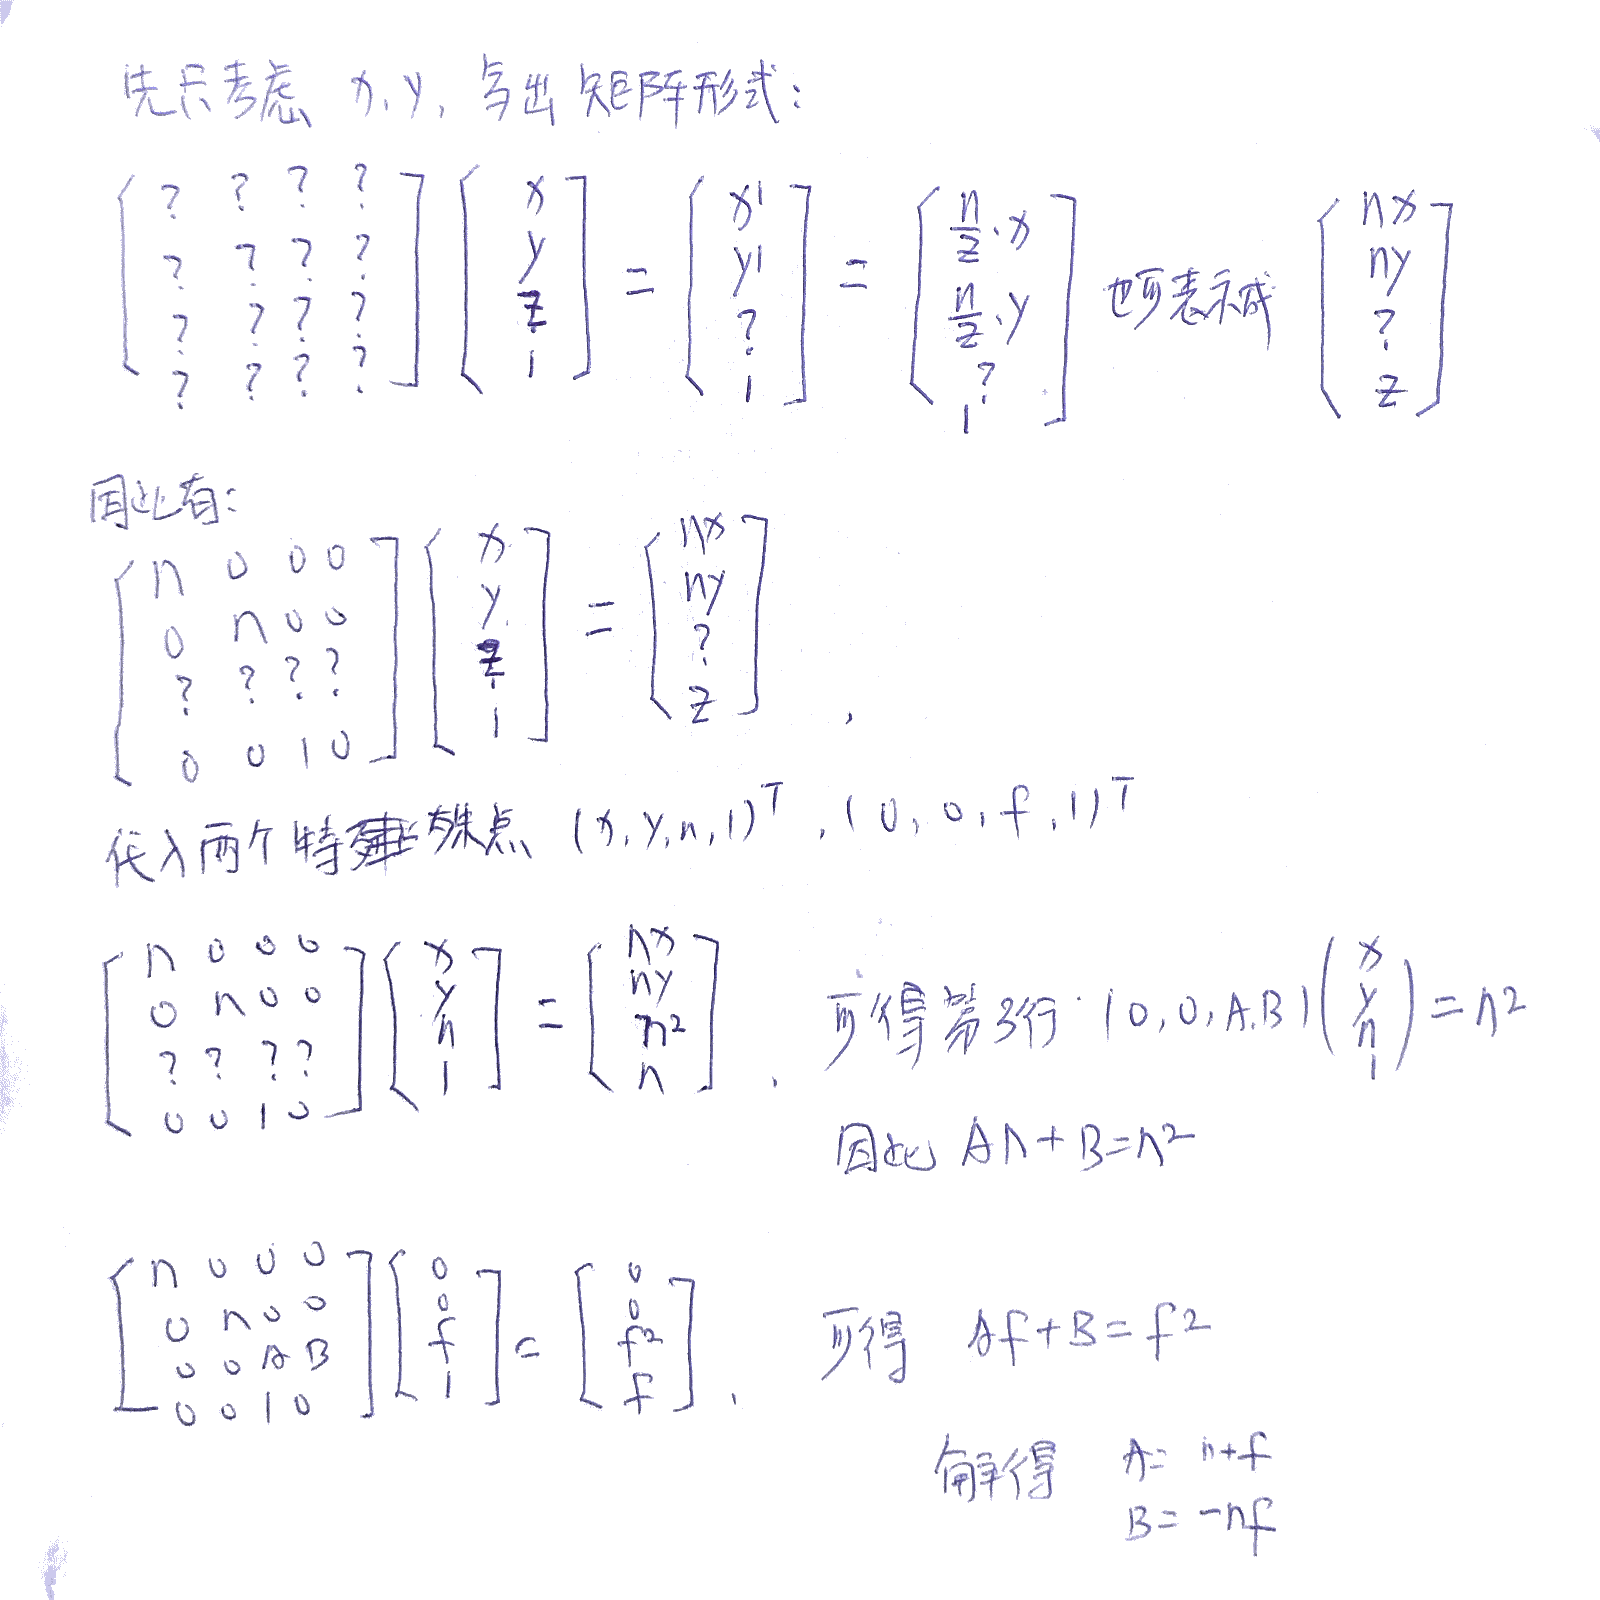 先只考虑 x, y, 写出矩阵形式:
[? ? ? ?; ? ? ? ?; ? ? ? ?; ? ? ? ?] [x; y; z; 1] = [x'; y'; ?; 1] = [n/z·x; n/z·y; ?; 1] 也可表示成 [nx; ny; ?; z]
因此有:
[n 0 0 0; 0 n 0 0; ? ? ? ?; 0 0 1 0] [x; y; z; 1] = [nx; ny; ?; z] ,
代入两个特殊点 (x, y, n, 1)ᵀ, (0, 0, f, 1)ᵀ
[n 0 0 0; 0 n 0 0; ? ? ? ?; 0 0 1 0] [x; y; n; 1] = [nx; ny; n²; n] , 可得第3行: (0, 0, A, B) (x; y; n; 1) = n²
因此 An + B = n²
[n 0 0 0; 0 n 0 0; 0 0 A B; 0 0 1 0] [0; 0; f; 1] = [0; 0; f²; f] , 可得 Af + B = f²
解得 A = n+f
B = -nf